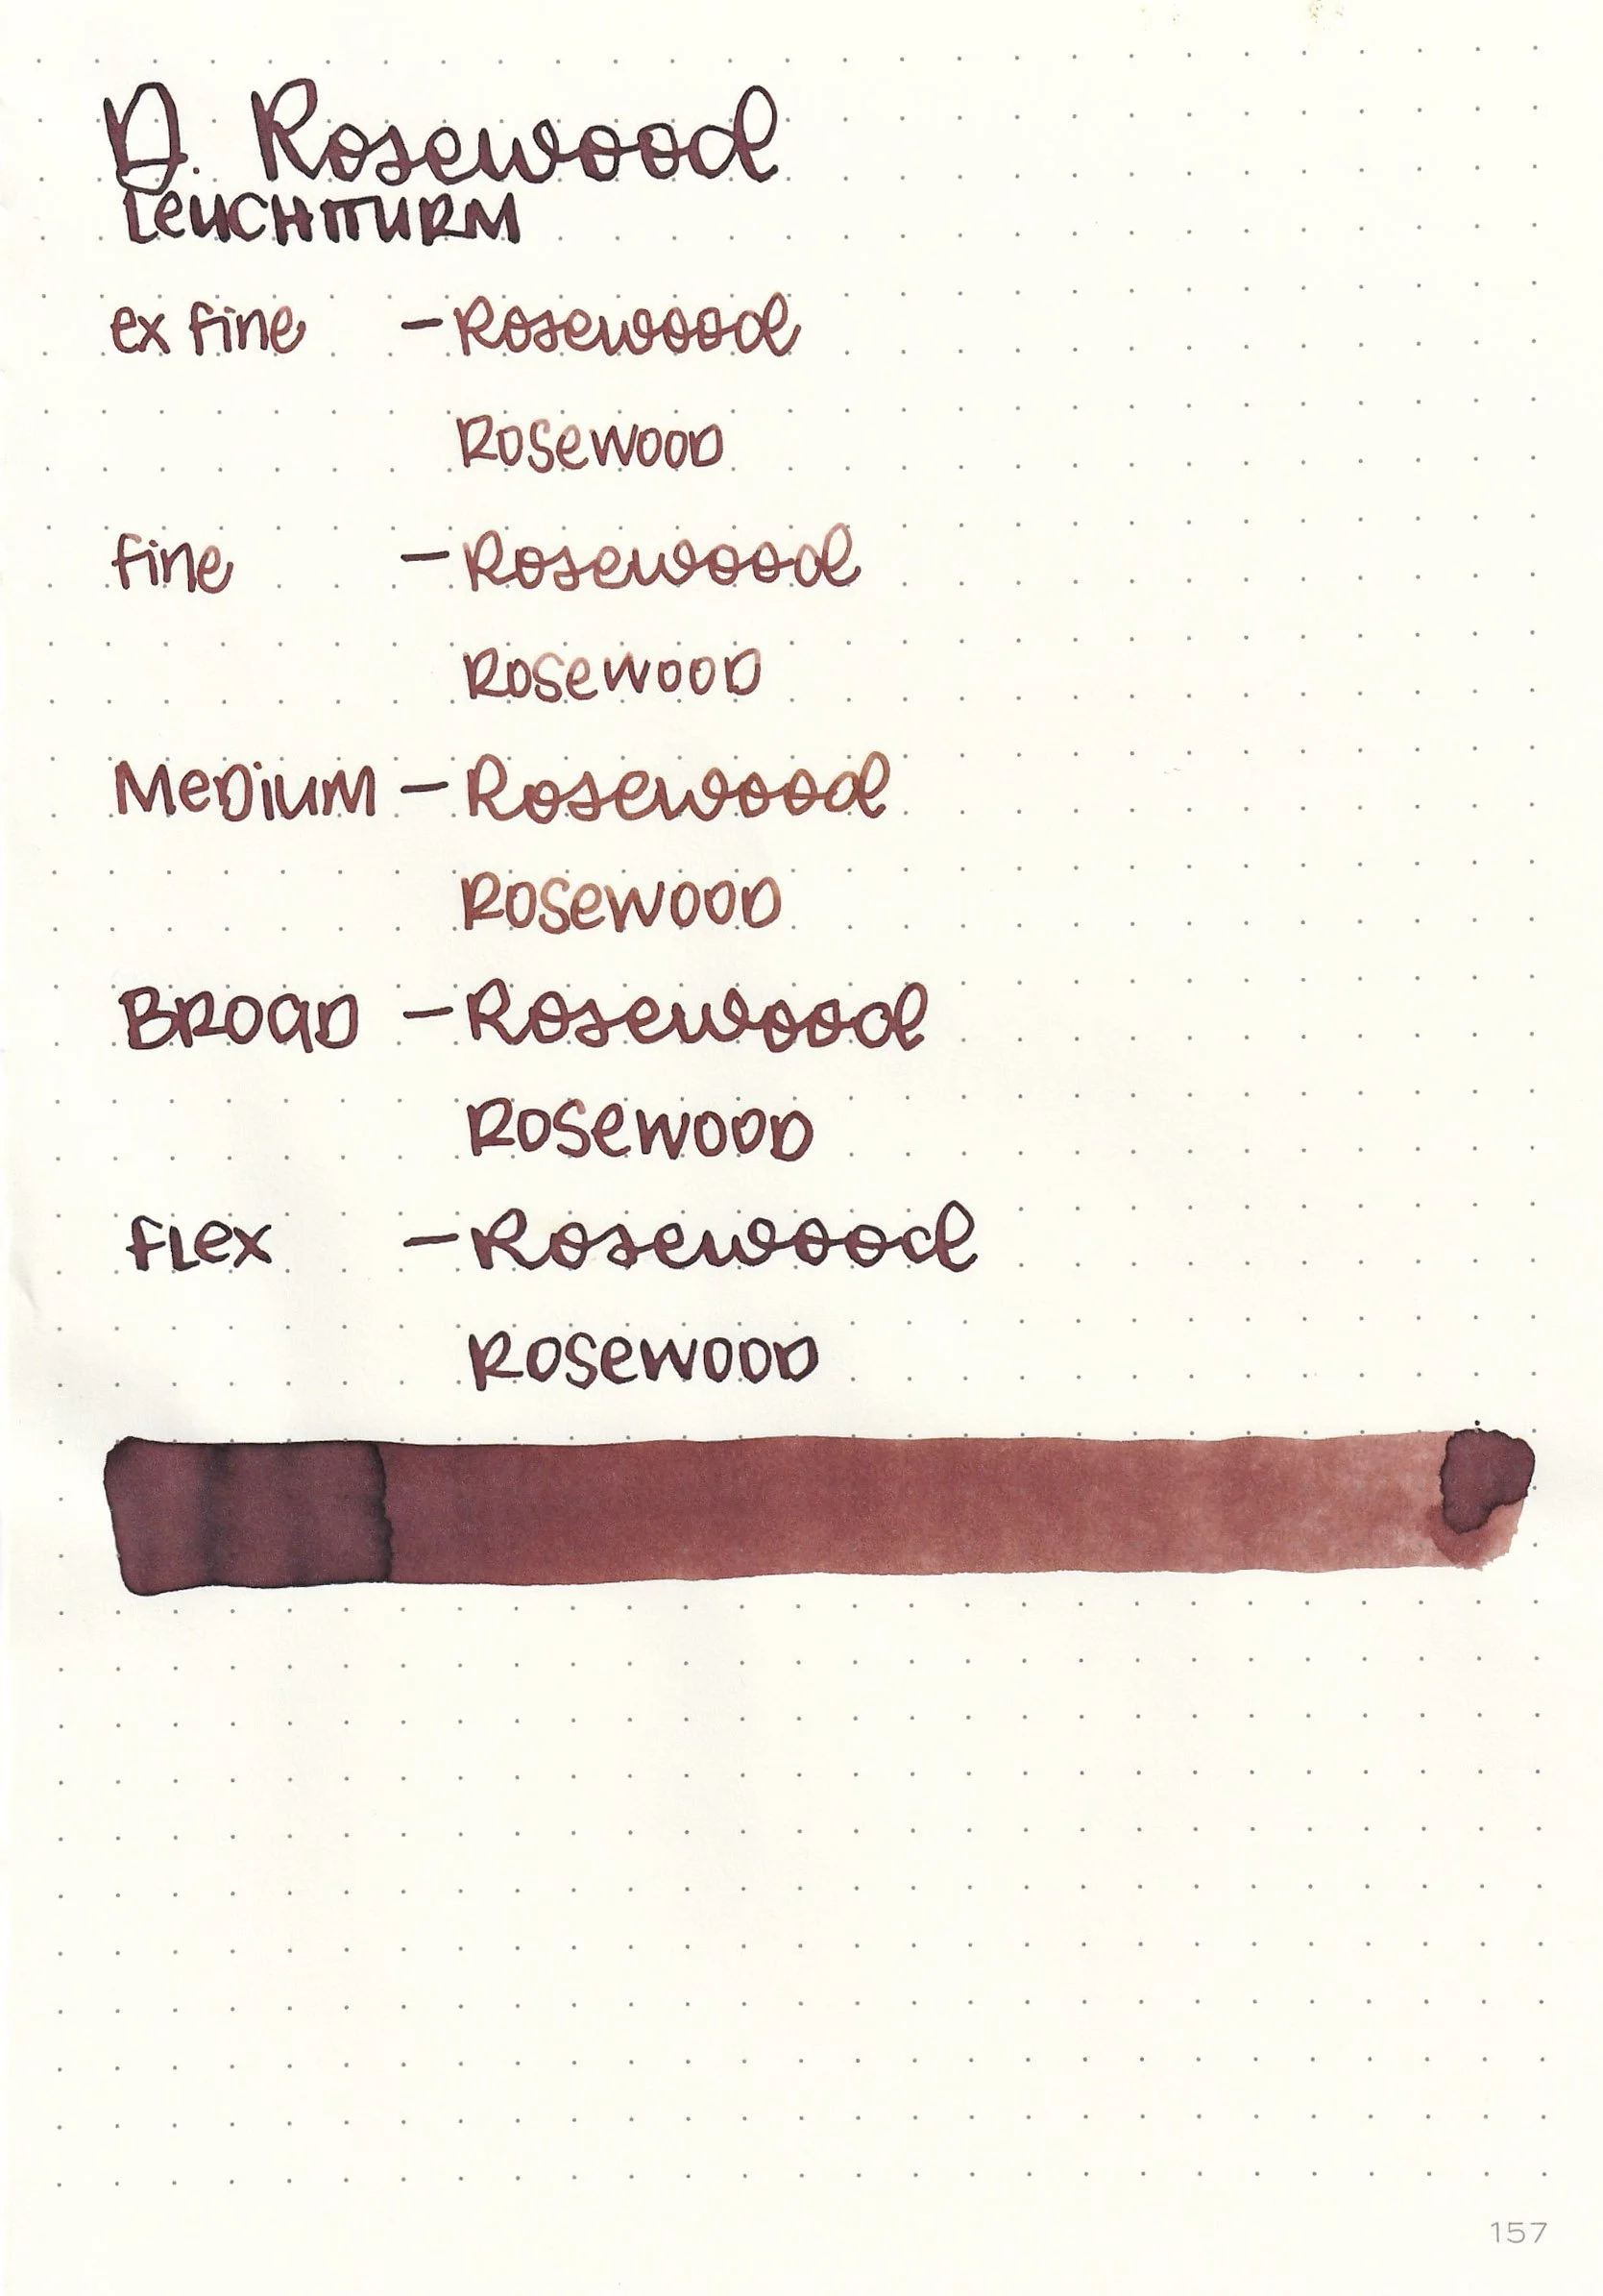 D. Rosewood
LeUCHTTURM
ex fine - Rosewood
RoSewooD
fine - Rosewood
RoSewooD
MeDiuM - Rosewood
RoSewooD
BROaD - Rosewood
RoSewooD
fLex - Rosewood
RoSewooD
157